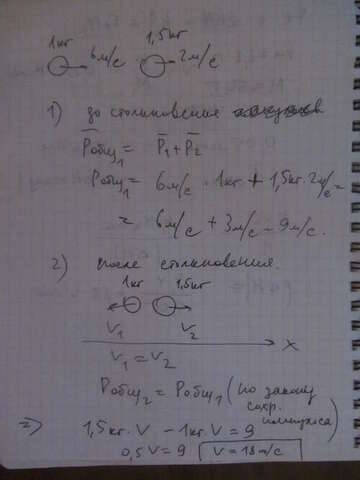 1кг 1,5кг
6м/с 2м/с
1) до столкновения
P̅общ₁ = P̅₁ + P̅₂
Pобщ₁ = 6м/с · 1кг + 1,5кг · 2м/с =
= 6м/с + 3м/с = 9м/с.
2) после столкновения.
1кг 1,5кг
V₁ V₂
x
V₁ = V₂
Pобщ₂ = Pобщ₁ (по закону
сохр.
импульса)
⇒ 1,5кг · V − 1кг · V = 9
0,5V = 9 V = 18м/с